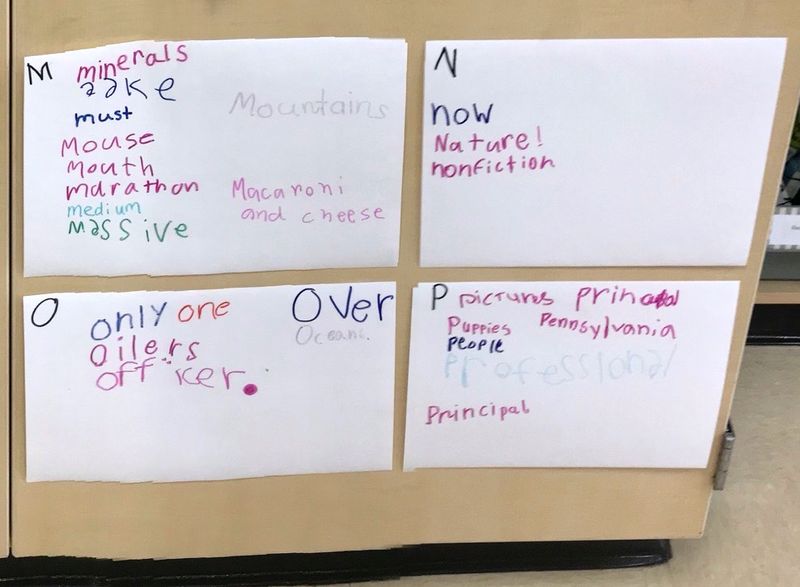 M
minerals
must
Mouse
Mouth
marathon
medium
Massive
Mountains
Macaroni
and cheese
N
now
Nature!
nonfiction
O
only one
Oilers
officer.
Over
Oceans.
P pictures
Puppies Pennsylvania
people
Professional
Principal